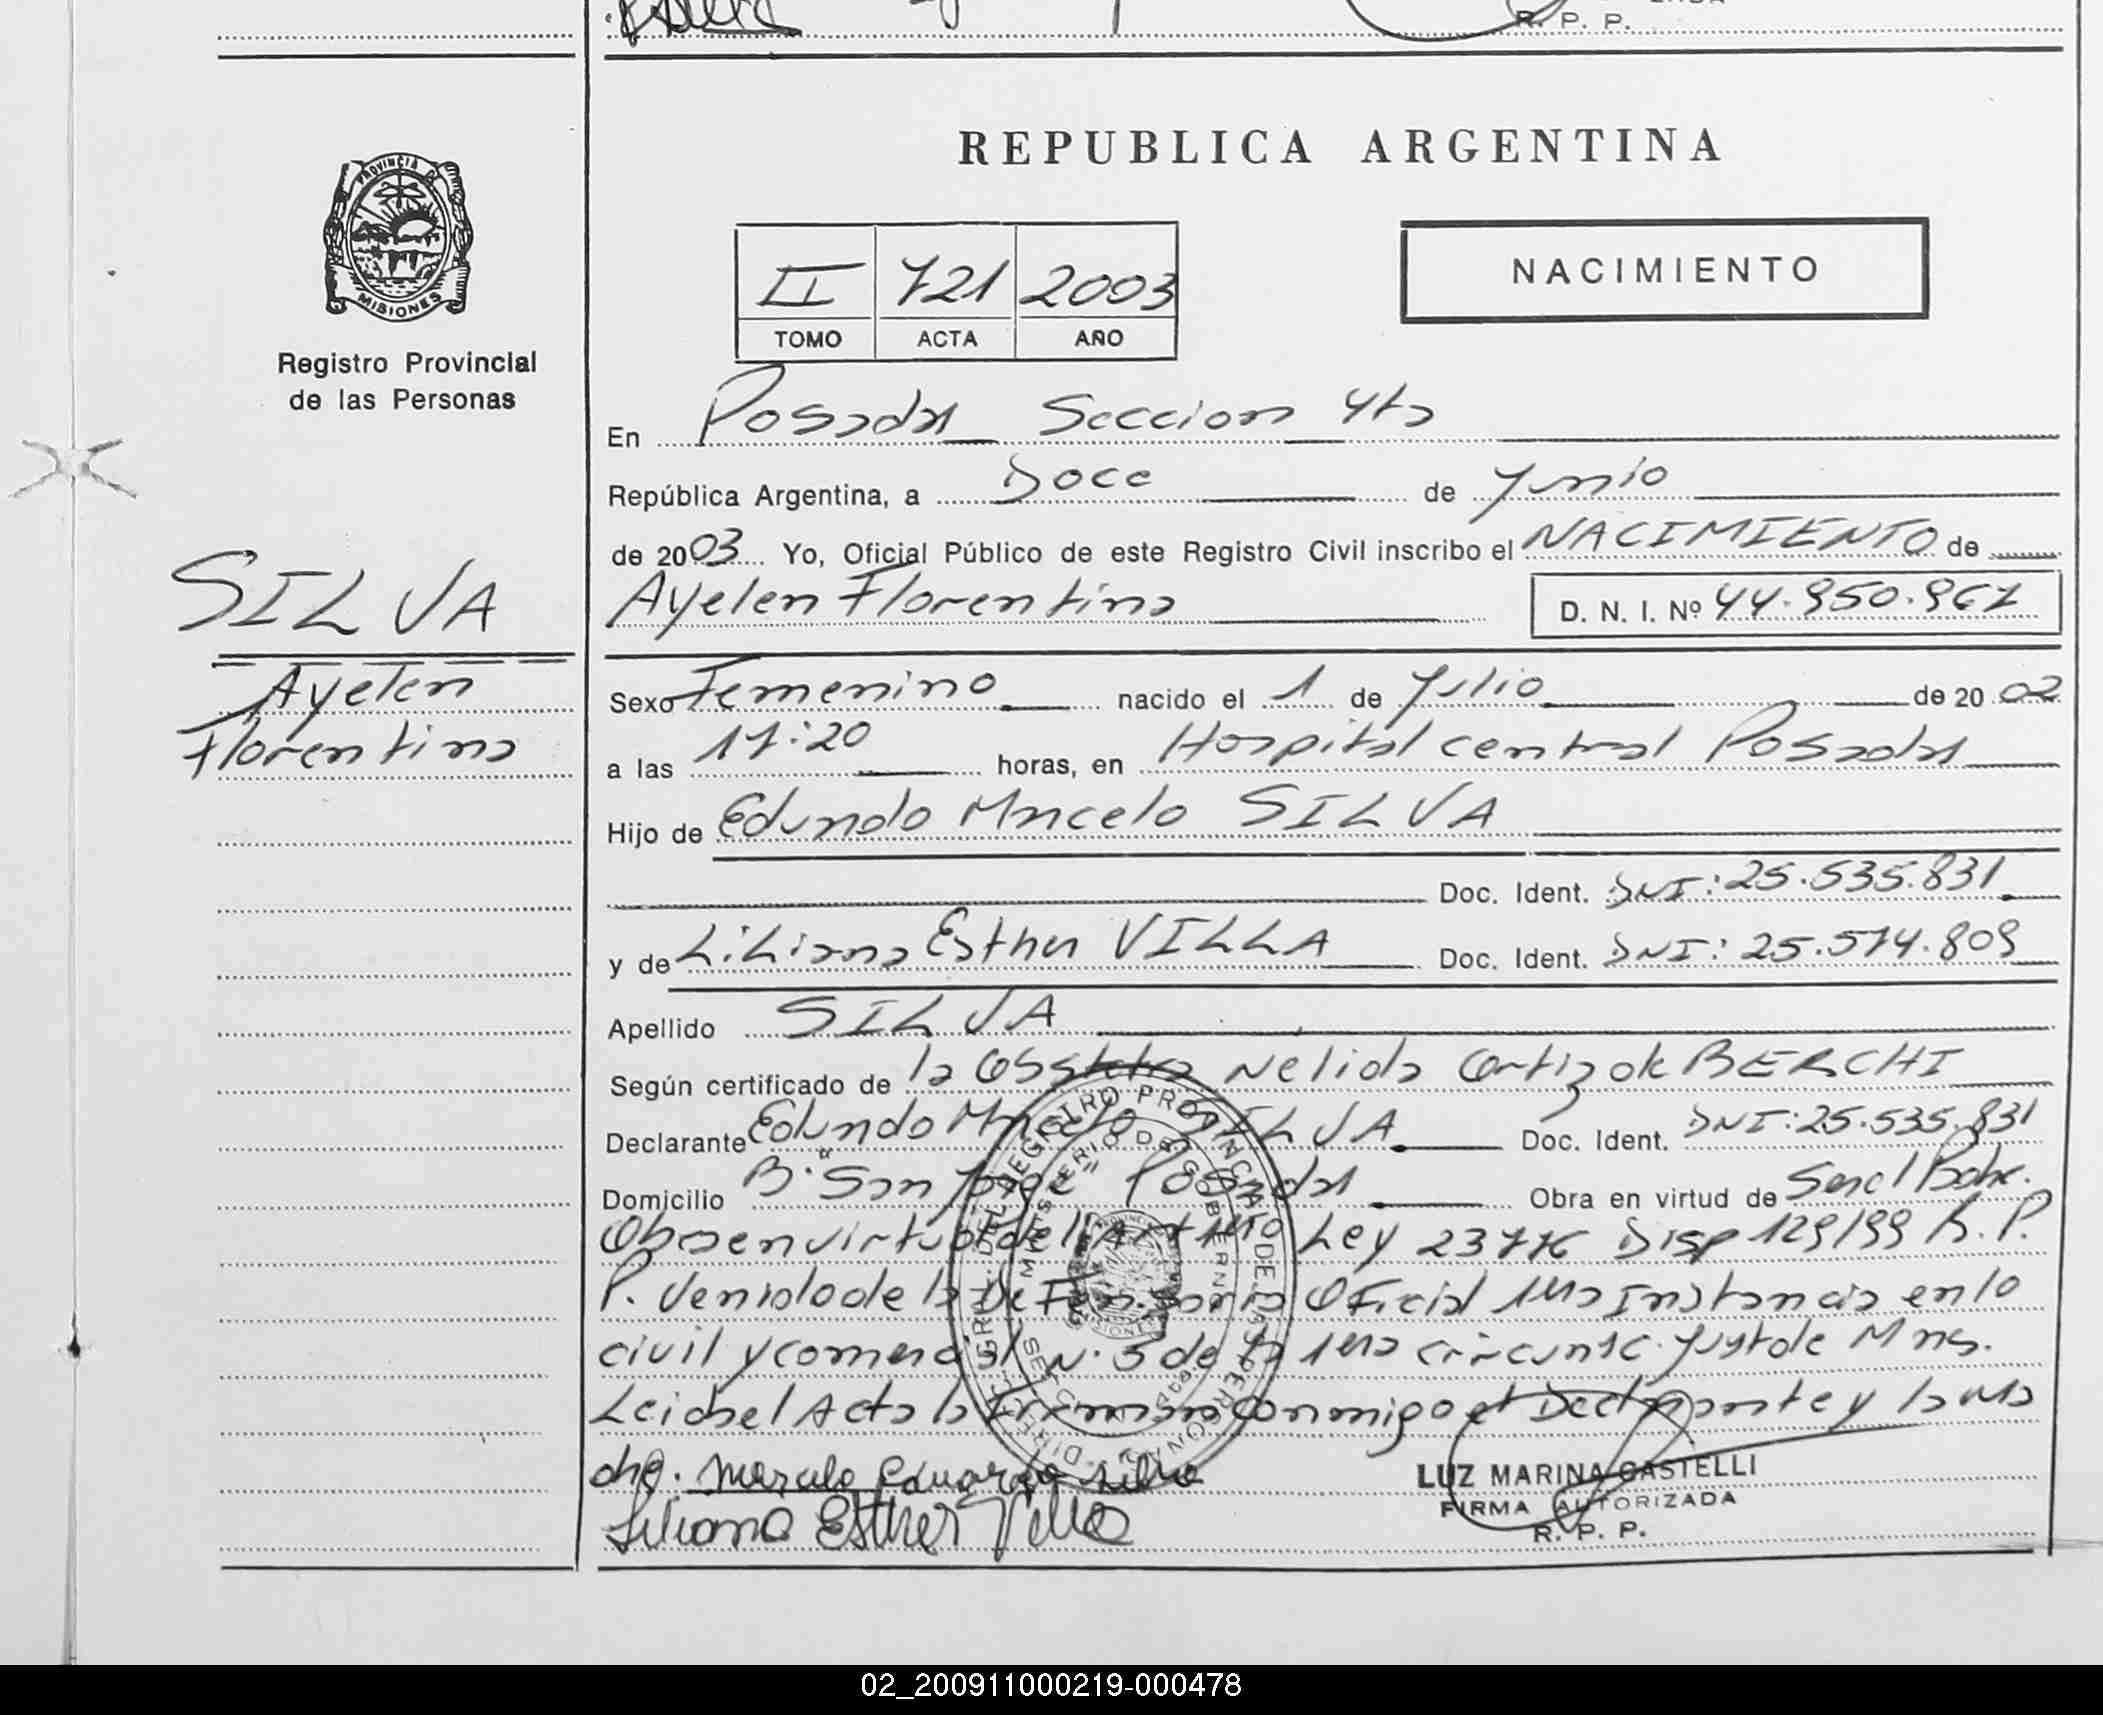 R. P. P.
REPUBLICA ARGENTINA
PROVINCIA DE
MISIONES
Registro Provincial
de las Personas
NACIMIENTO
II 721 2003
TOMO ACTA AÑO
En Posadas Seccion 4ta
República Argentina, a Doce de Junio
de 2003 Yo, Oficial Público de este Registro Civil inscribo el NACIMIENTO de
Ayelen Florentina D. N. I. Nº 44.950.967
SILVA
Ayelen
Florentina
Sexo Femenino nacido el 1 de Julio de 2002
a las 11:20 horas, en Hospital central Posadas
Hijo de Edundo Marcelo SILVA
Doc. Ident. DNI: 25.535.831
y de Liliana Esther VILLA Doc. Ident. DNI: 25.574.809
Apellido SILVA
Según certificado de la Obstetra Nelida Ortiz de BERCHI
Declarante Edundo Marcelo SILVA Doc. Ident. DNI: 25.535.831
Domicilio Bº San Jorge Posadas Obra en virtud de
Obra en virtud del Art 1ro Ley 23776 Disp 129/99 R. P.
P. Venido de la Defensoria Oficial 1ra Instancia en lo
civil y comercial N. 3 de la 1ra circunsc. Just de Mnes.
Leida el Acta la Firman conmigo el Declarante y la Ma
dre. Marcelo Eduardo Silva
Liliana Esther Villa
LUZ MARINA CASTELLI
FIRMA AUTORIZADA
R. P. P.
DIREC. GRAL. DEL REGISTRO PROVINCIAL DE LAS PERSONAS
MINISTERIO DE GOBIERNO
02_200911000219-000478